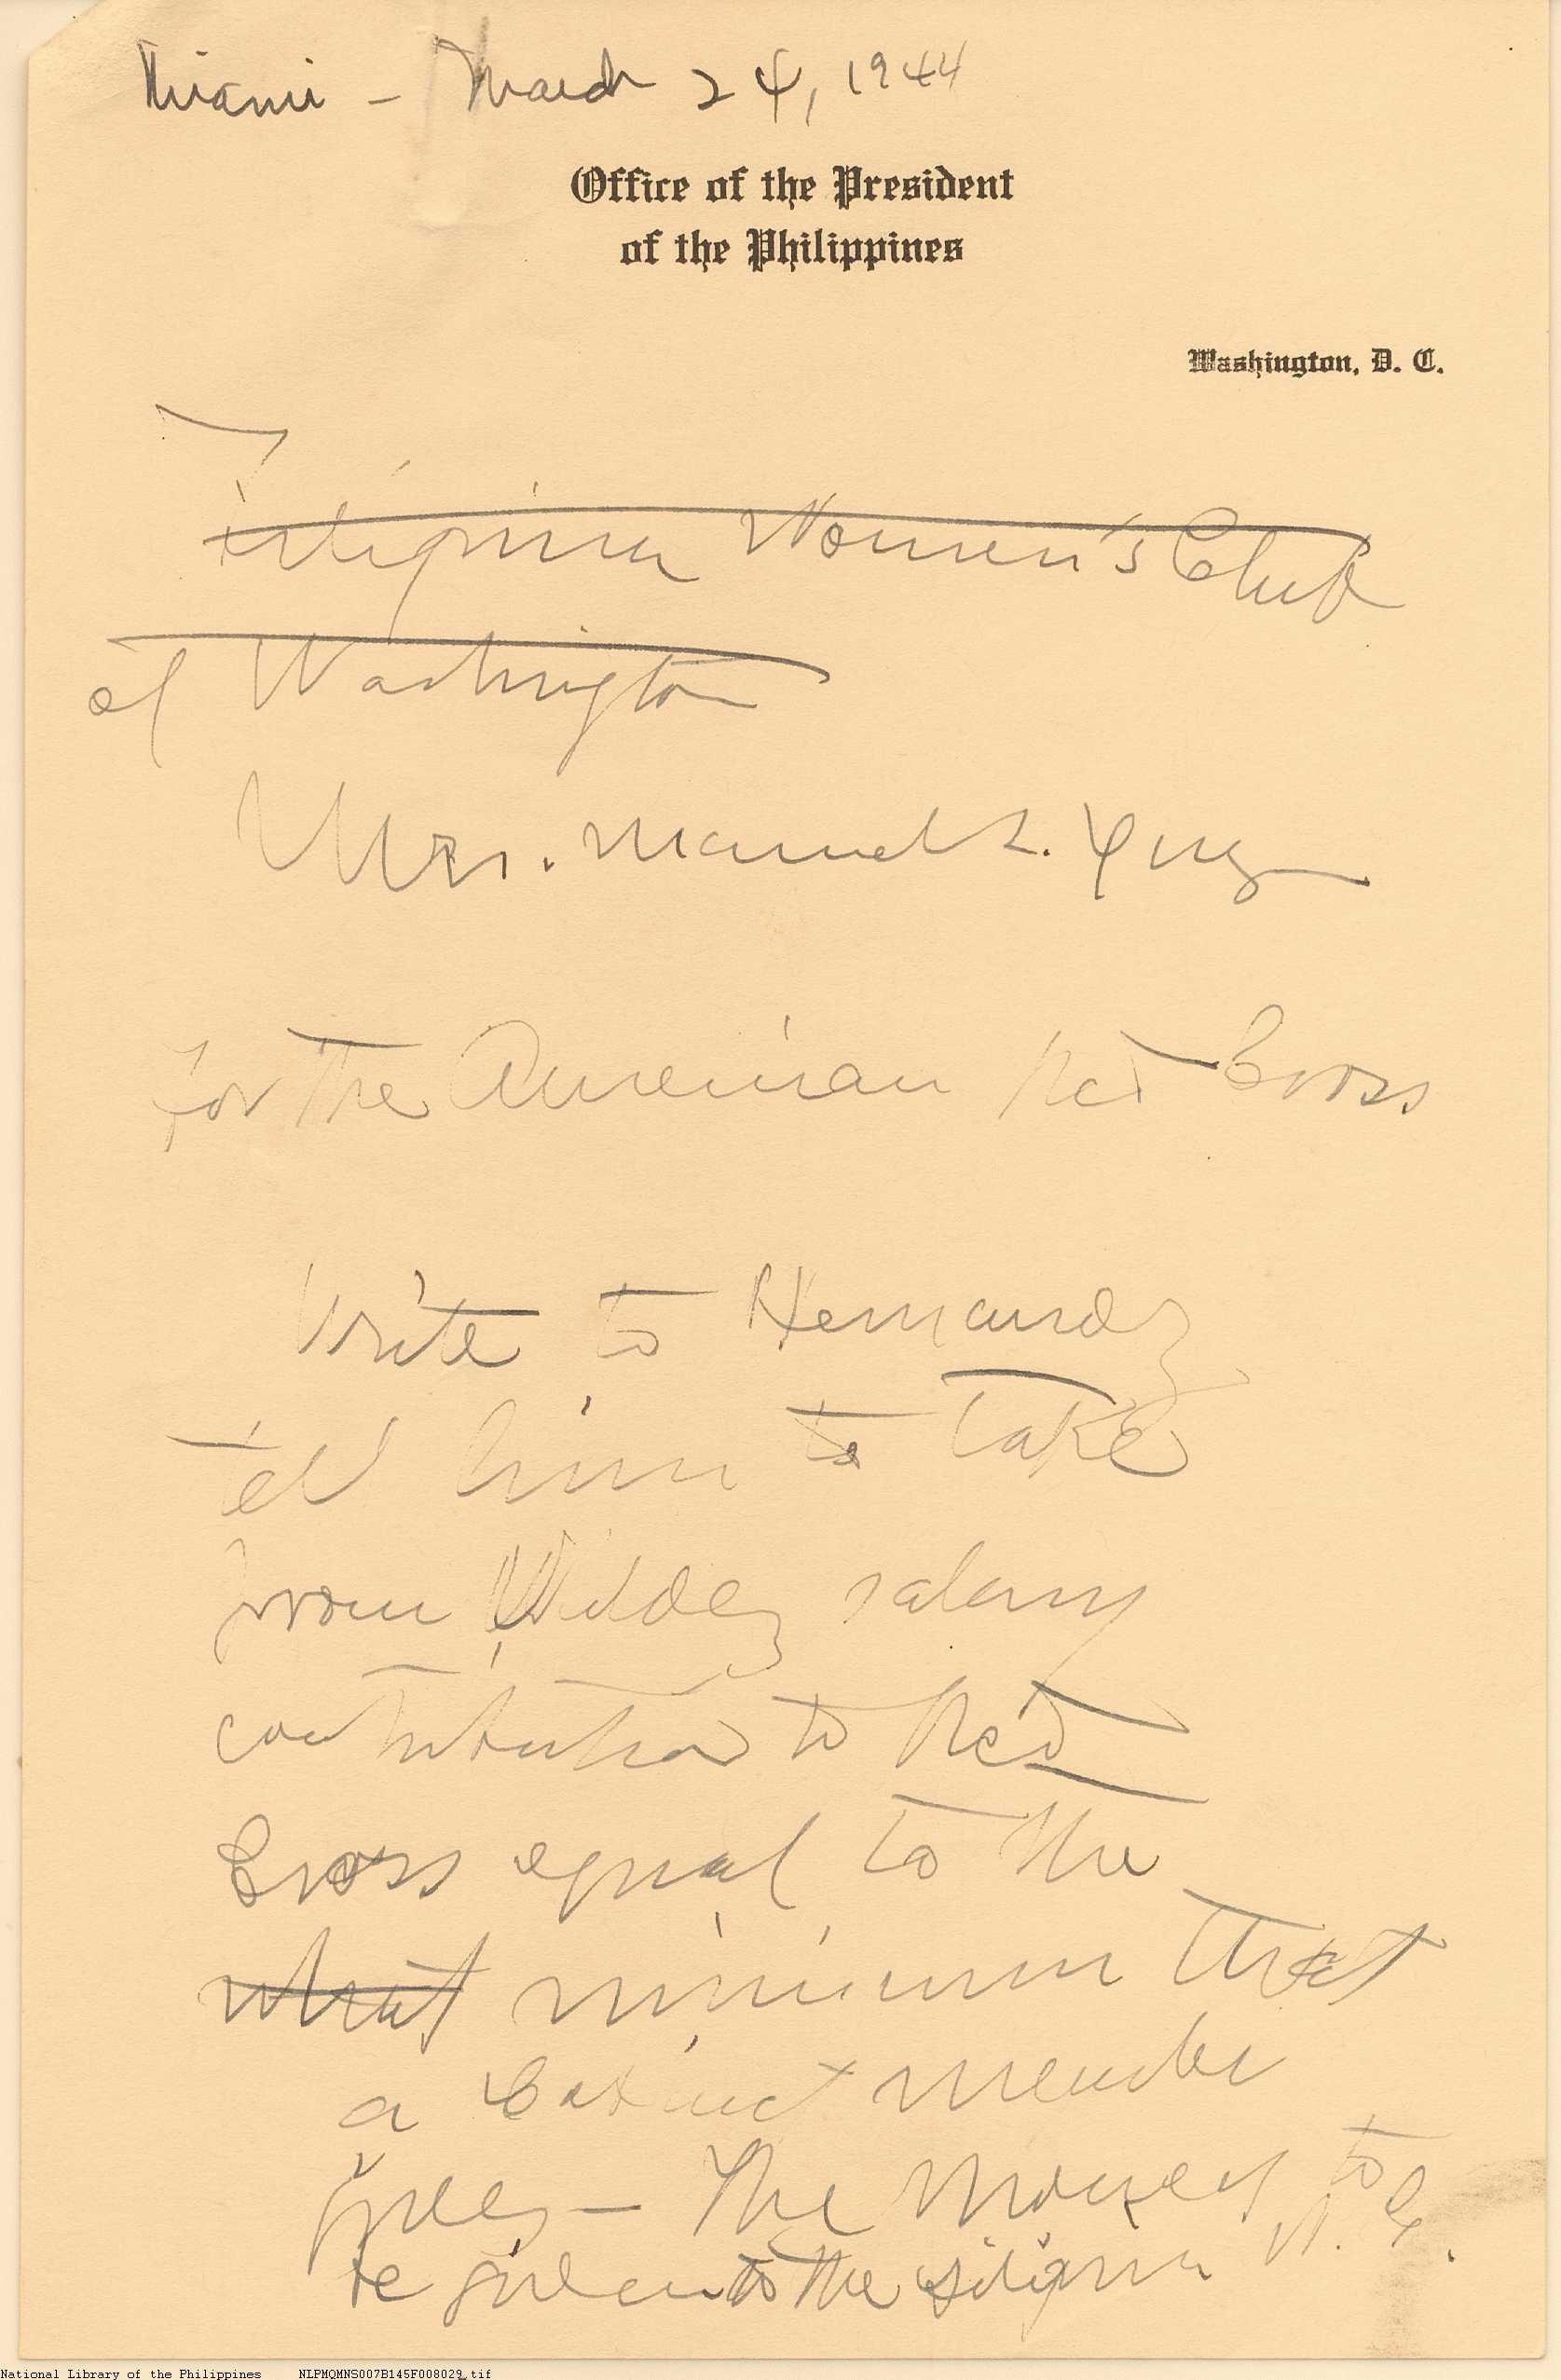 Miami - March 24, 1944
Office of the President
of the Philippines
Washington, D. C.
Filipina Women's Club
of Washington
Mrs. Manuel L. Quezon
for the American Red Cross
Write to Hernandez
tell him to take
from salary
contribution to Red
Cross equal to the
what minimum that
a Cabinet member
gives - The money to
be given to the Filipina W. C.
National Library of the Philippines NLPMQMNS007B145F008029_tif